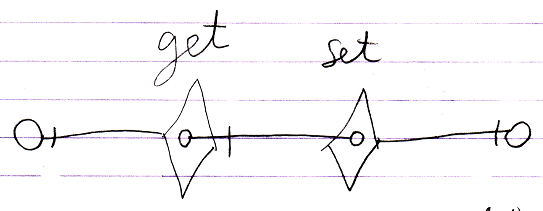 get set